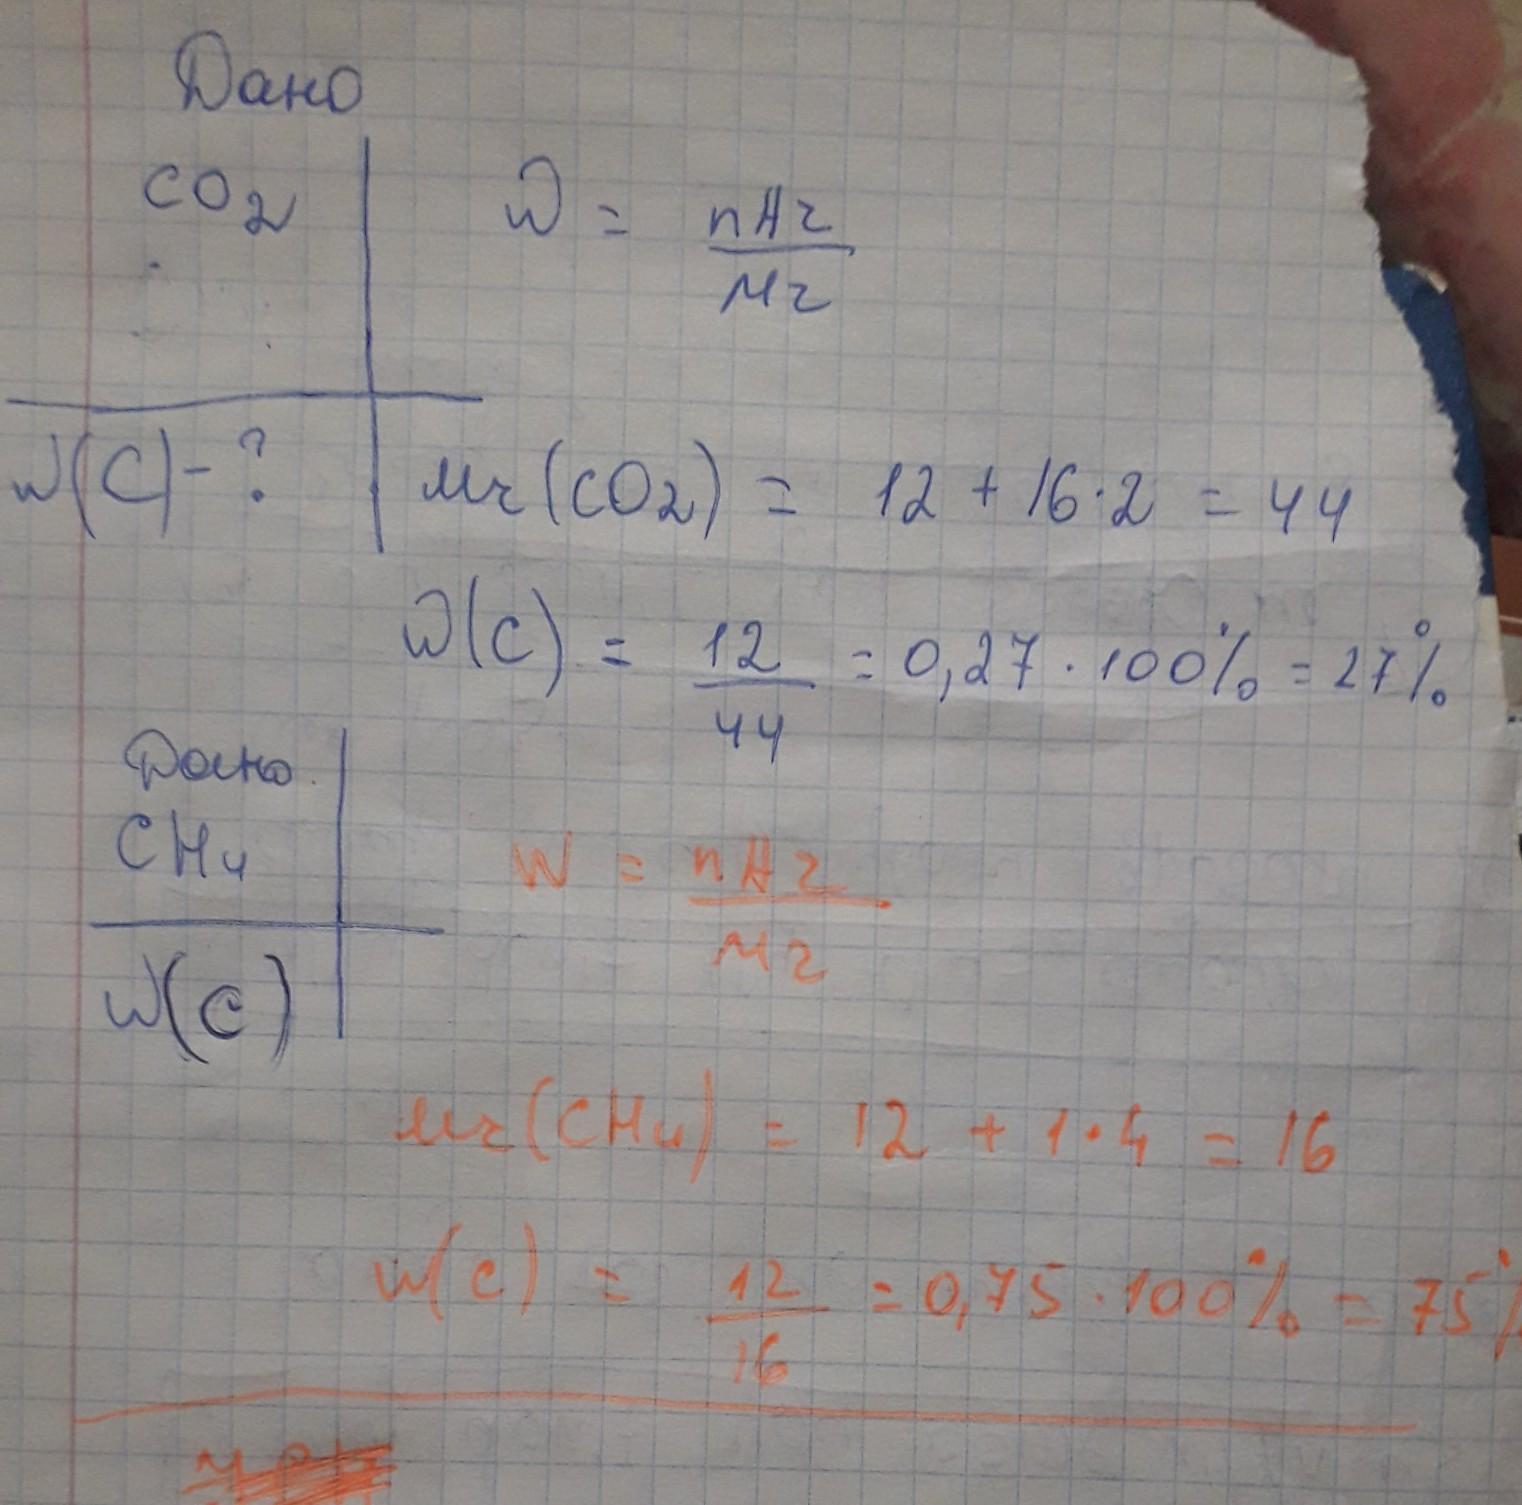 Дано
CO2
W = nAr
Mr
W(C)-?
Mr(CO2) = 12 + 16·2 = 44
W(C) = 12 = 0,27 · 100% = 27%
44
Дано
CH4
W = nAr
Mr
W(C)
Mr(CH4) = 12 + 1·4 = 16
W(C) = 12 = 0,75 · 100% = 75%
16